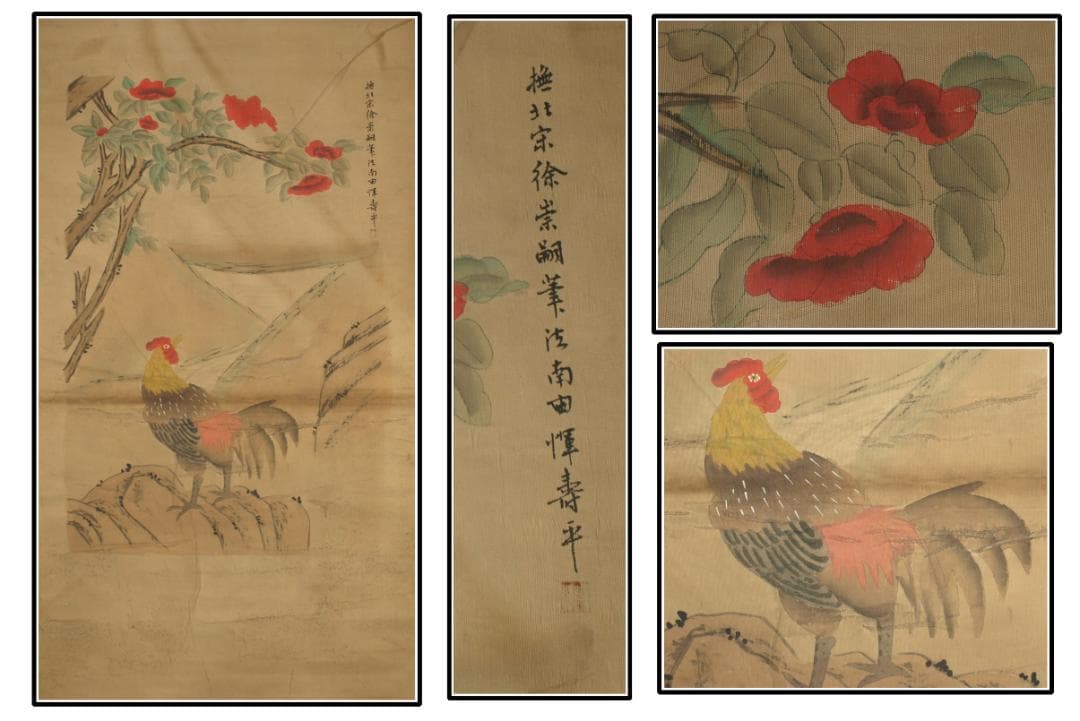 撫北宋徐崇嗣筆法南田惲壽平
撫北宋徐崇嗣筆法南田惲壽平